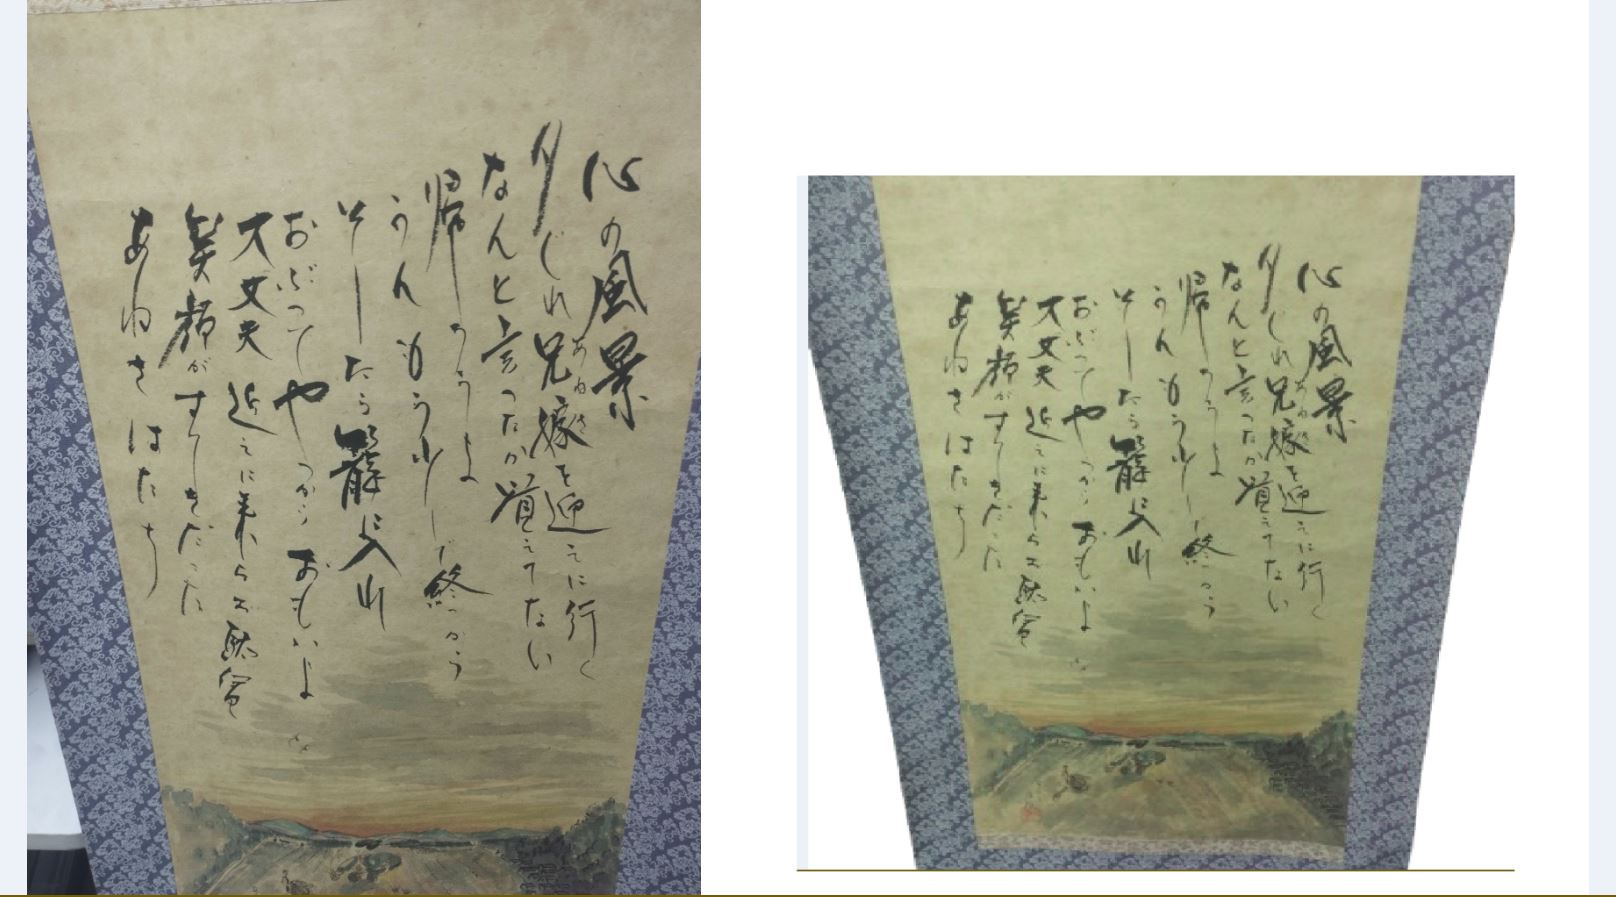 心の風景
夕ぐれ兄嫁を迎えに行く
あねさ
なんと言ったか覚えてない
帰ろうよ
うんもう少しで終っから
そーしたら籠に入れ
おぶってやっからおもいよ
大丈夫近えに来
笑顔がすてきだった
あねさはたち
心の風景
夕ぐれ兄嫁を迎えに行く
あねさ
なんと言ったか覚えてない
帰ろうよ
うんもう少しで終っから
そーしたら籠に入れ
おぶってやっからおもいよ
大丈夫近えに来
笑顔がすてきだった
あねさはたち